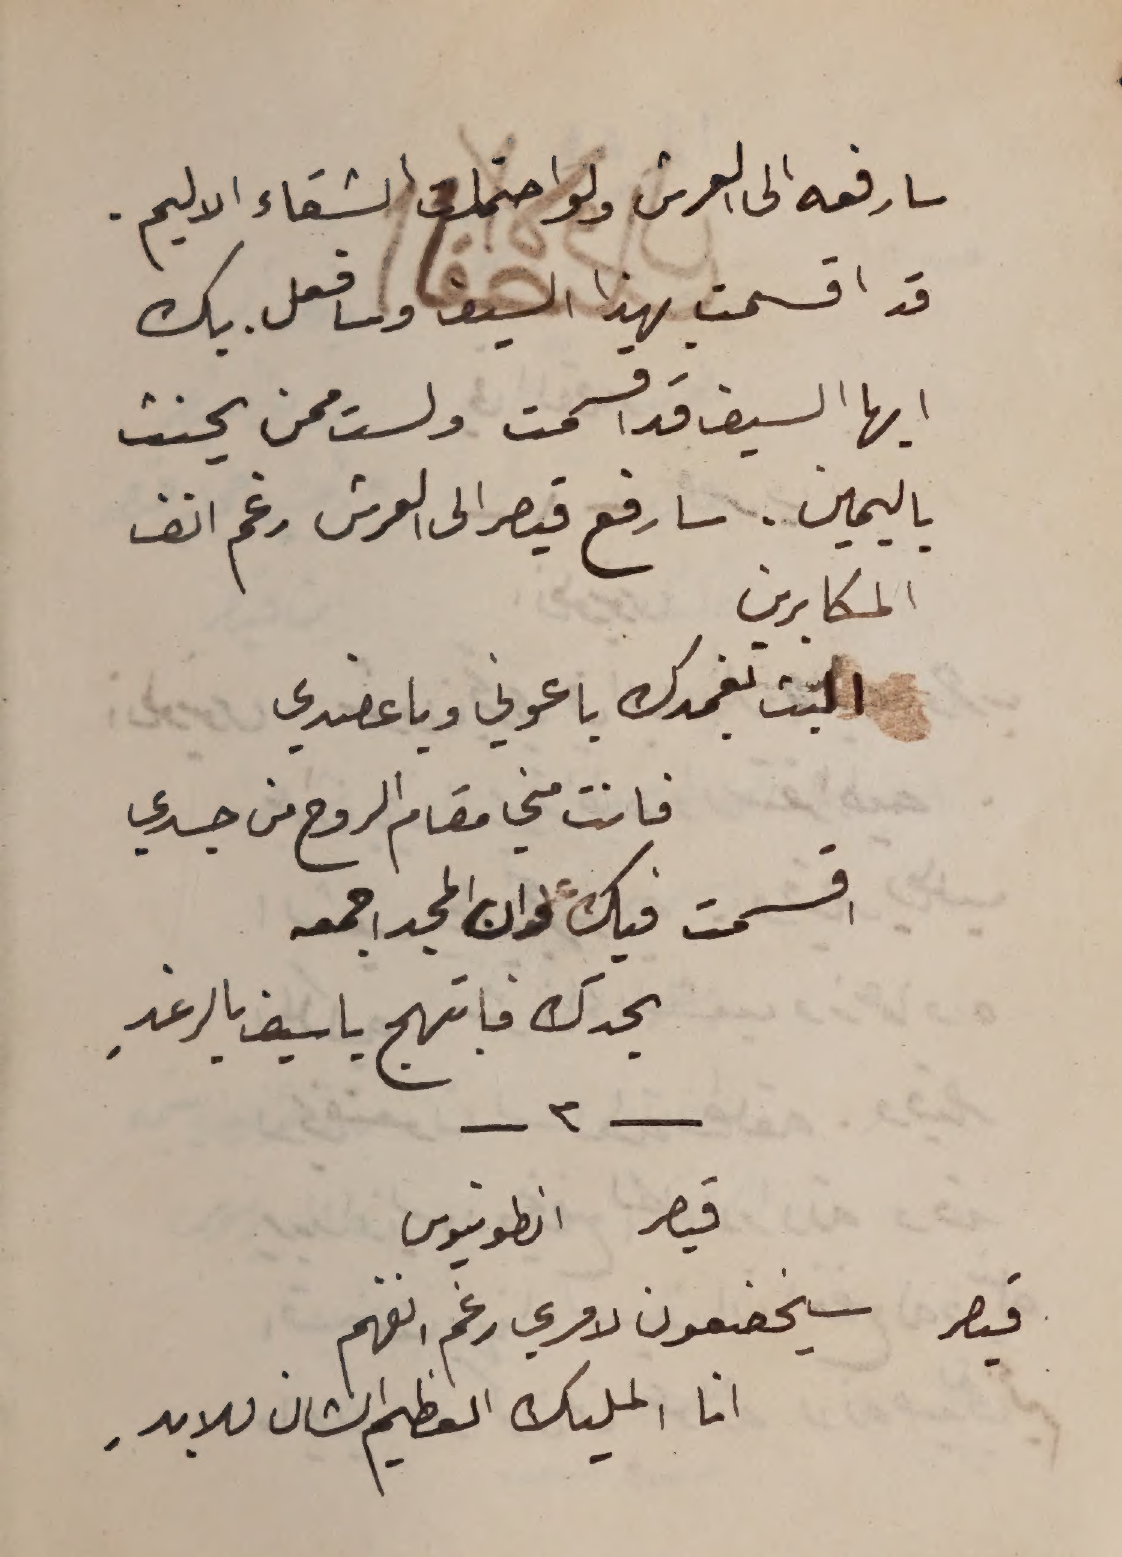 سارفعه الى العرش ولو احتملت الشقاء الاليم .
قد اقسمت بهذا السيف وسافعل . بك
ايها السيف قد اقسمت ولست ممن يحنث
باليمين . سارفع قيصر الى العرش رغم انف
المكابرين
البث بغمدك يا عوني ويا عضدي
فانت مني مقام الروح من جسدي
اقسمت فيك وان المجد اجمعه
بحدك فابتهج يا سيف بالرغدِ
— ٣ —
قيصر انطونيوس
قيصر سيخضعون لامري رغم انفهم
انا المليك العظيم الشان للابدِ